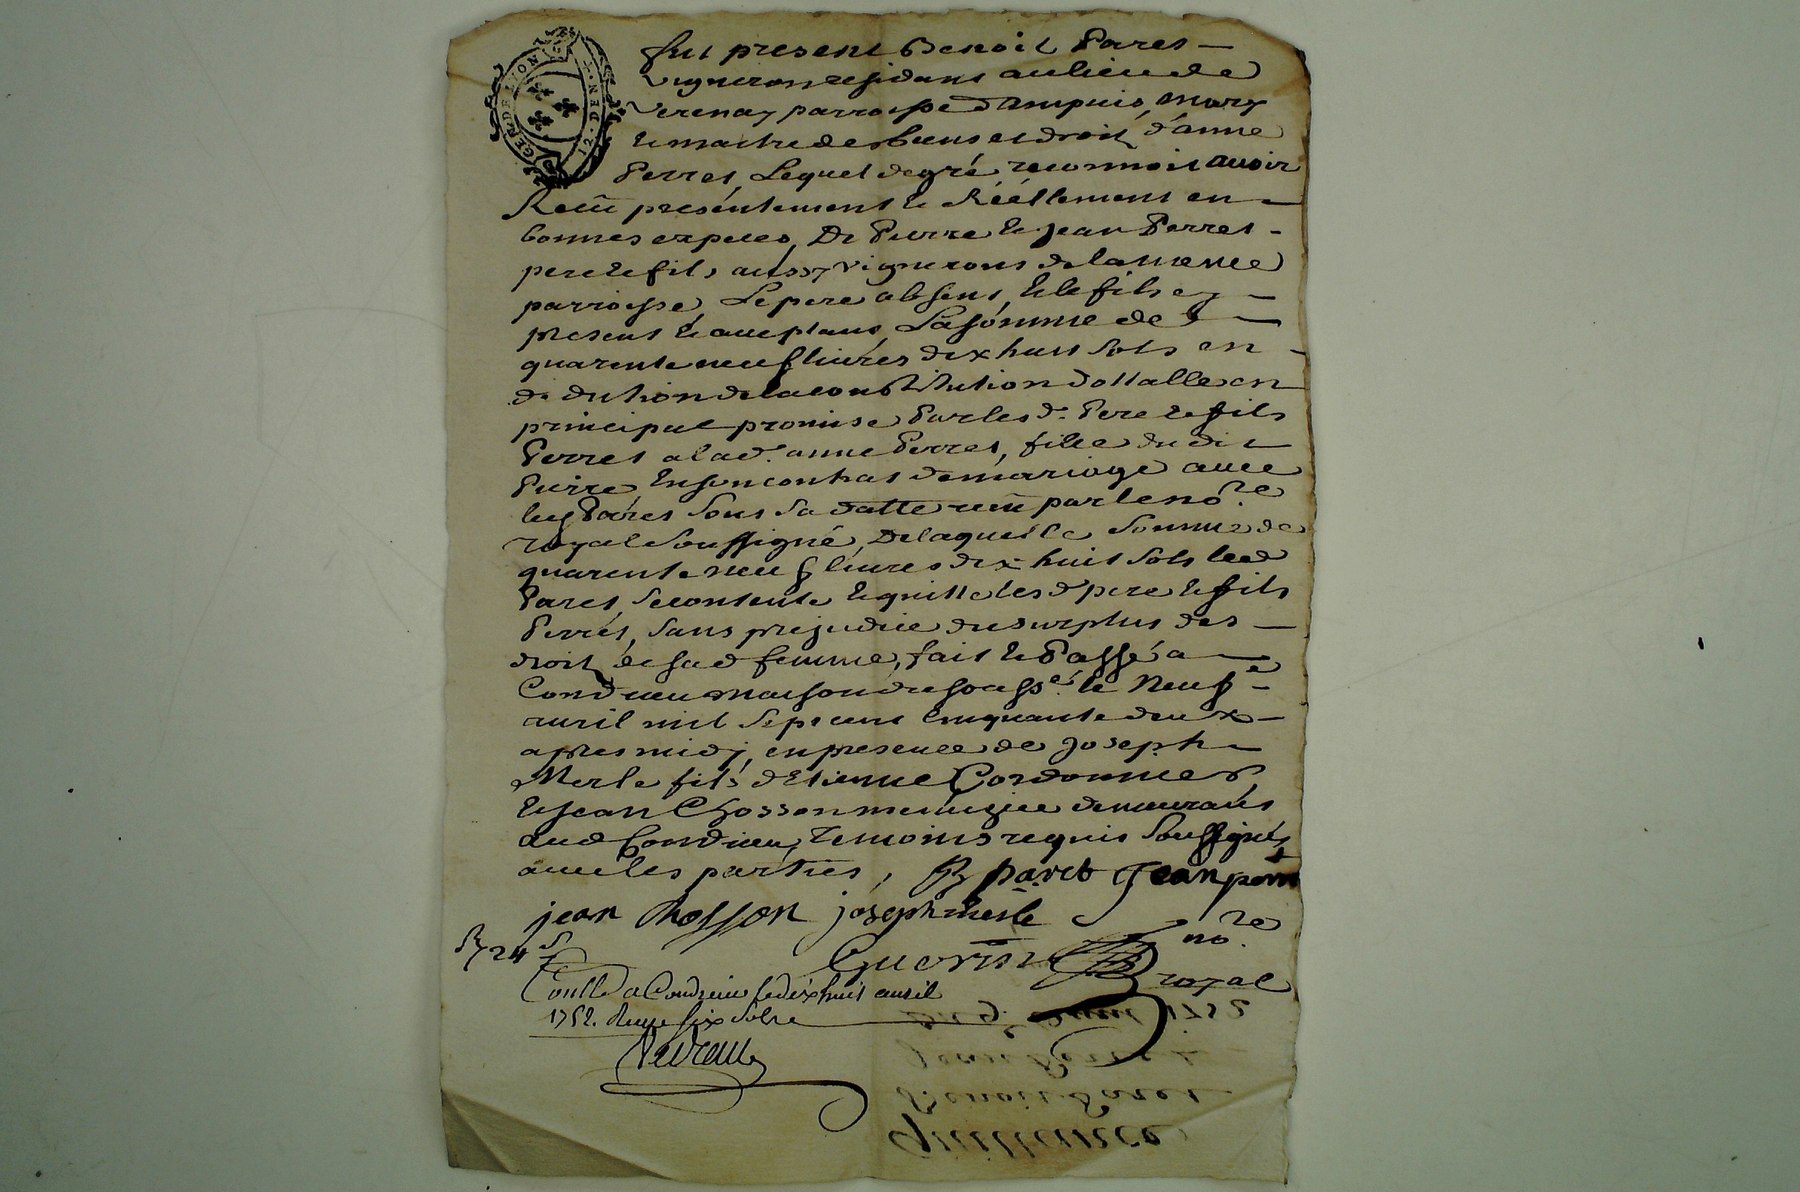 GEN. DE LYON
12. DEN. 4
fut present Benoit Paret
vigneron residant au lieu de
verenay parroisse d'ampuis, mary
et maitre des biens et droits d'anne
Perret, Lequel de gré reconnoit avoir
Receu presentement et Réellement en
bonnes especes, De Pierre et Jean Perret
pere et fils aussy vignerons de la meme
parroisse, Le pere absent, et le fils cy
present et aceptant, La somme de
quarente neuf livres dix huit sols en
deduction de la constitution dottalle en
principal promise Par les d. Pere et fils
Perret a la d. anne Perret, fille du dit
Pierre En son contrat de mariage avec
led Paret sous sa datte receu par le no.re
royal soussigné, De laquelle somme de
quarente neuf livres dix huit sols led
Paret, se contente et quitte les d pere et fils
Perret, sans prejudice du surplus des
droits de sa d femme, fait et Passé a
Condrieu maison du soussé. le Neuf e
avril mil sept cent cinquante deux
apres midy, en presence de Joseph
Merle fils d'Etienne Cordonnier
et Jean Chosson menuzier demeurants
aud Condrieu, temoins requis soussignés
avec les parties, B paret Jean peret
jean Chosson joseph merle
R 24 s
Guerin no.re
royal
Conllé a Condrieu le dix huit avril
1752. Reçu six sols
Du 9.e avril 1752
Jean Perret
Benoit Paret
quittance